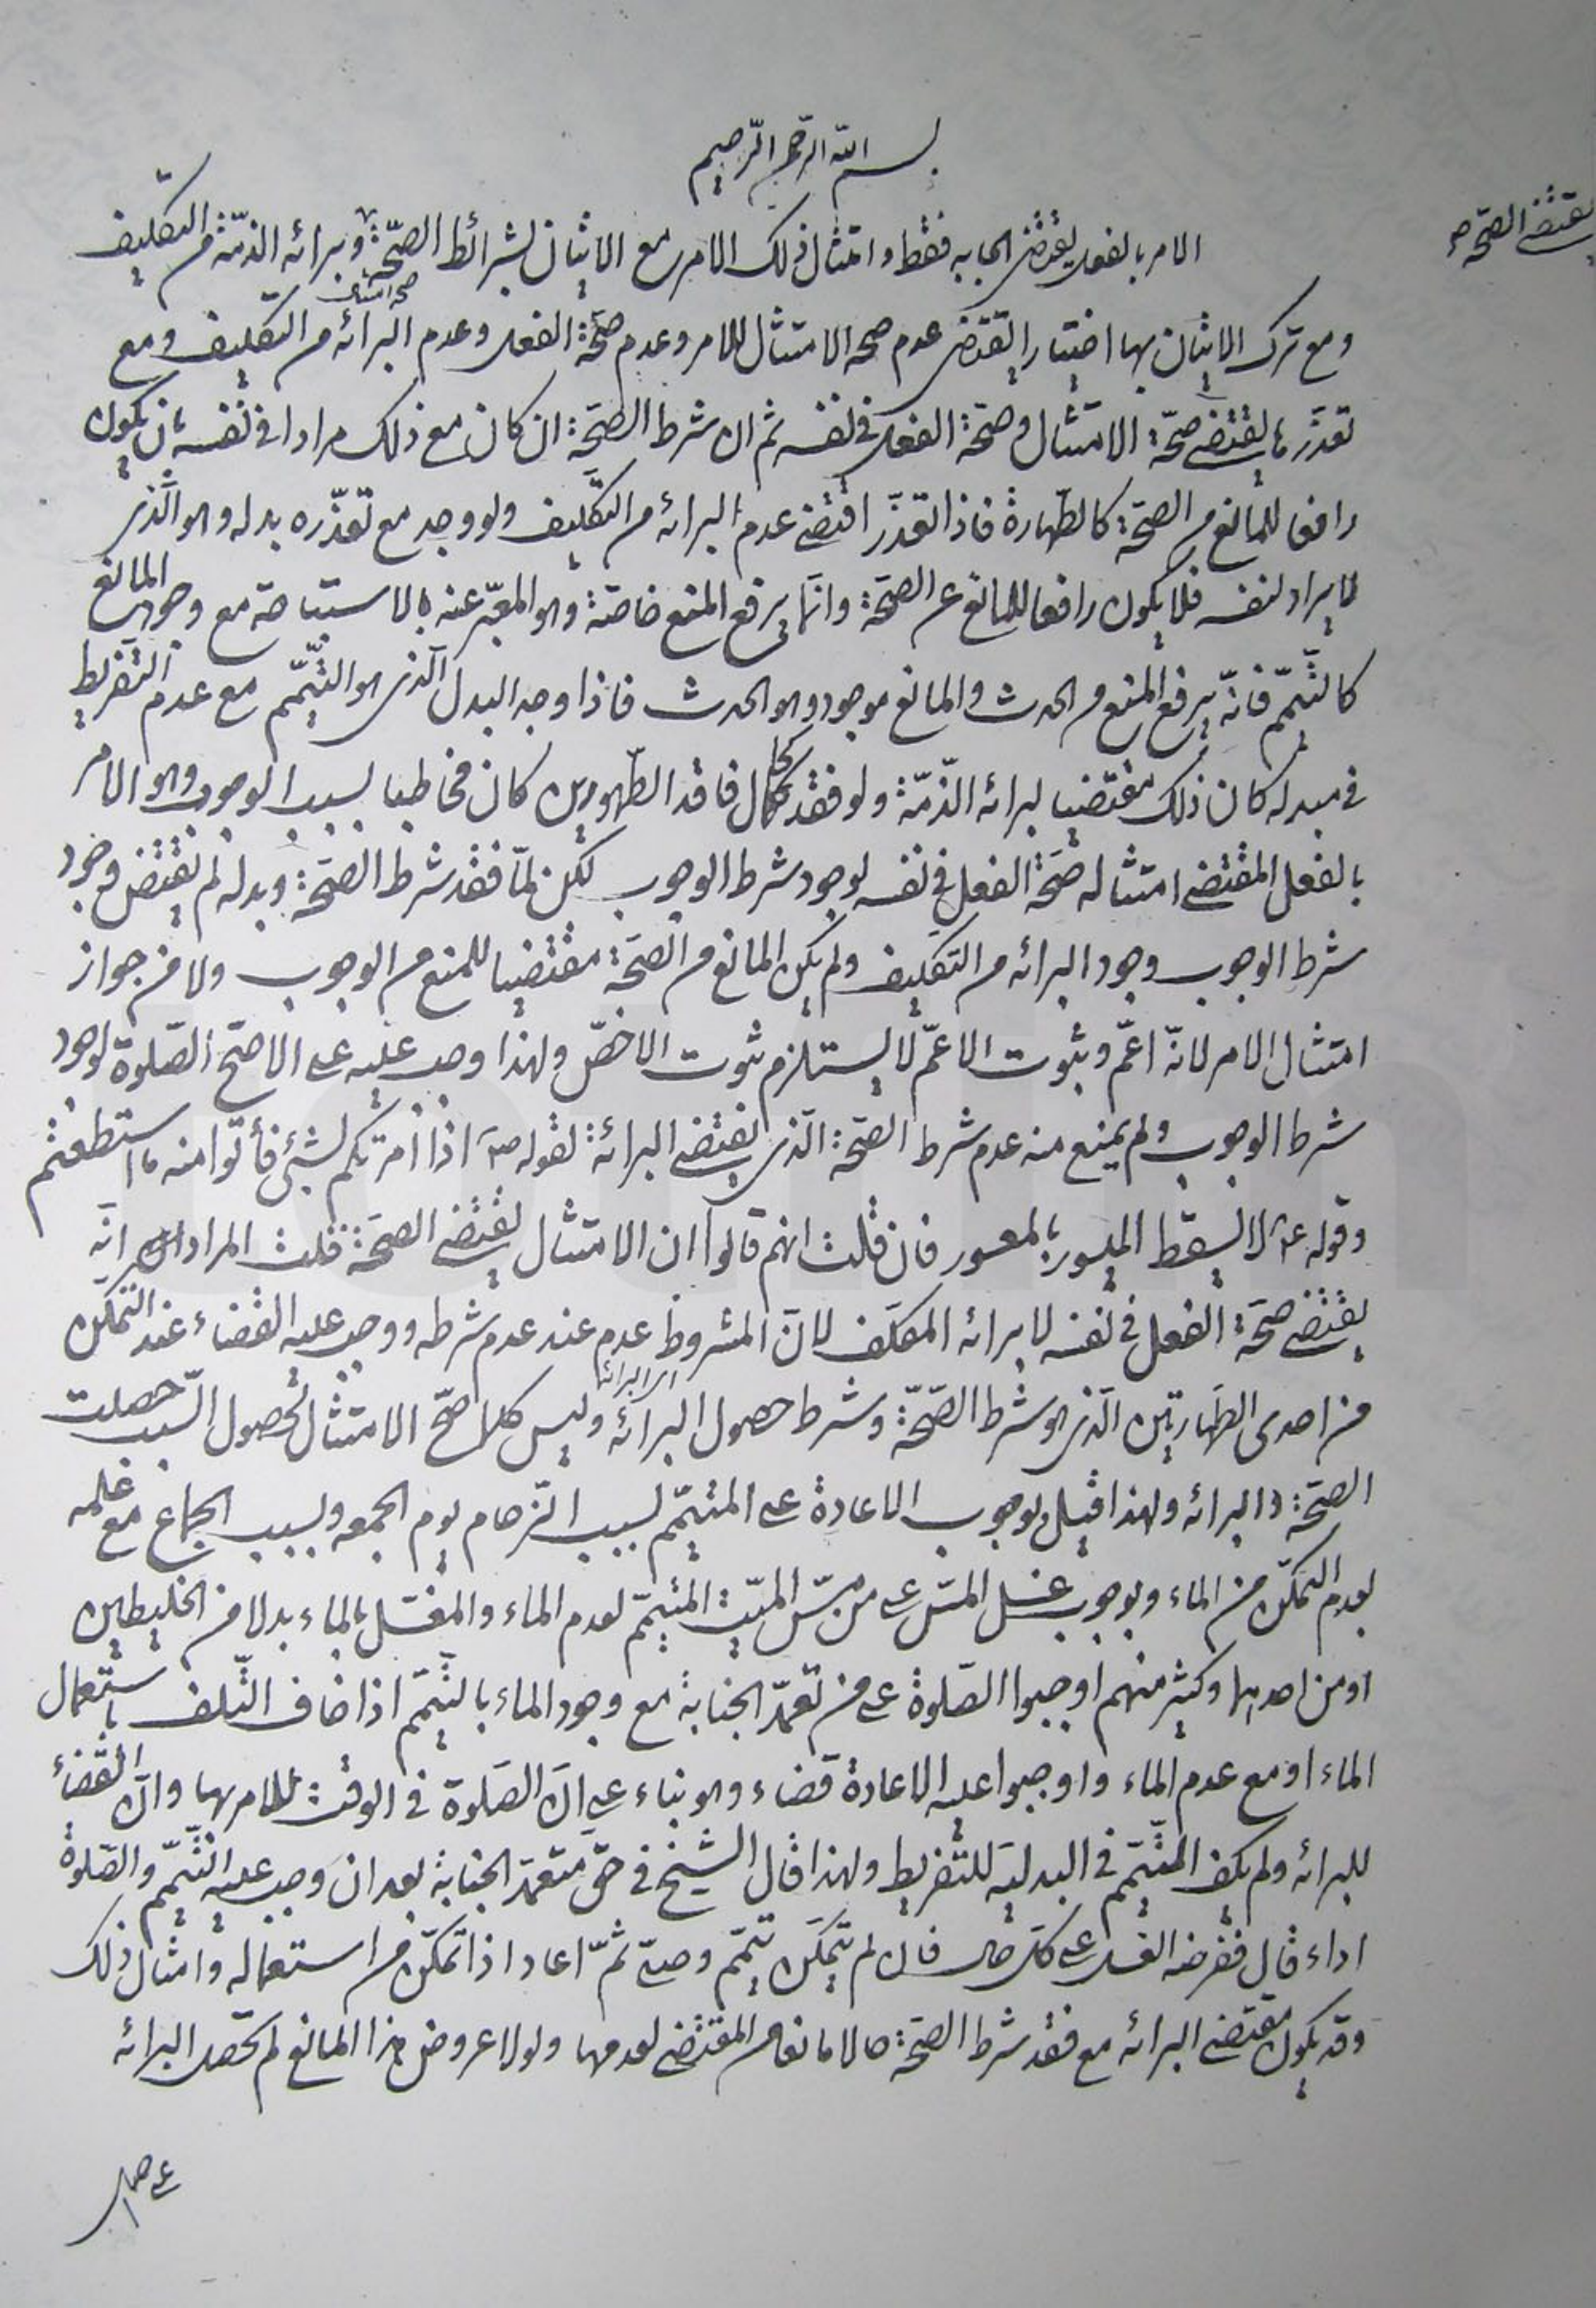 بسم الله الرحمن الرحيم
يقتضى الصحة صح
الامر بالفعل يقتضى ايجابه فقط و امتثال ذلك الامر مع الاتيان بشرائط الصّحّة وبرائه الذمّة من التكليف
صحة امتثال
ومع ترك الاتيان بها اختيارا يقتضى عدم صحه الامتثال للامر وعدم صحّة الفعل وعدم البرائه من التكليف ومع
تعذّرها يقتضى صحّة الامتثال وصحّة الفعل فى نفسه ثم ان شرط الصحّة ان كان مع ذلك مرادا فى نفسه بان يكون
رافعا للمانع من الصحّة كالطّهارة فاذا تعذّر اقتضى عدم البرائه من التكليف ولو وجد مع تعذّره بدله وهو الّذى
لا يراد لنفسه فلا يكون رافعا للمانع عن الصحّة وانّما يرفع المنع خاصّة وهو المعبّر عنه بالاستباحة مع وجود المانع
كالتّيمّم فانّه يرفع المنع من الحدث والمانع موجود وهو الحدث فاذا وجد البدل الّذى هو التّيمّم مع عدم التّفريط
فى مبدله كان ذلك مقتضيا لبرائه الذّمّة ولو فقد كحال فاقد الطّهورين كان مخاطبا بسبب الوجوب وهو الامر
بالفعل المقتضى امتثاله صحّة الفعل فى نفسه لوجود شرط الوجوب لكن لمّا فقد شرط الصّحّة وبدله لم يقتض وجود
شرط الوجوب وجود البرائه من التكليف ولم يكن المانع من الصّحّة مقتضيا للمنع من الوجوب ولا من جواز
امتثال الامر لانّه اعمّ وثبوت الاعمّ لا يستلزم ثبوت الاخصّ ولهذا وجب عليه على الاصحّ الصّلوة لوجود
شرط الوجوب ولم يمنع منه عدم شرط الصّحّة الّذى يقتضى البرائة لقوله ص اذا امرتكم بشئ فأتوا منه ما استطعتم
وقوله ع لا يسقط الميسور بالمعسور فان قلت انهم قالوا ان الامتثال يقتضى الصحّة قلت المراد انّه
يقتضى صحّة الفعل فى نفسه لا برائه المكلّف لانّ المشروط عدم عند عدم شرطه ووجب عليه القضاء عند التّمكّن
اى البرائه
من احدى الطّهارتين الّذى هو شرط الصّحّة وشرط حصول البرائه وليس كلما صحّ الامتثال لحصول السّبب حصلت
الصحّة و البرائه ولهذا قيل بوجوب الاعادة على المتيمّم بسبب الزّحام يوم الجمعه وبسبب الجماع مع علمه
بعدم التّمكّن من الماء وبوجوب غسل المسّ على من مسّ الميّت المتيمّم لعدم الماء والمغسّل بالماء بدلا من الخليطين
او من احدهما وكثير منهم اوجبوا الصّلوة على من تعمّد الجنابة مع وجود الماء بالتيمّم اذا خاف التّلف باستعمال
الماء او مع عدم الماء واوجبوا عليه الاعادة قضاء وهو بناء على انّ الصّلوة فى الوقت للامر بها وانّ القضاء
للبرائه ولم يكف التيمّم فى البدليّة للتّفريط ولهذا قال الشّيخ فى حقّ متعمّد الجنابة بعد ان وجب عليه التّيمّم والصّلوة
اداء قال ففرضه الغسل على كلّ حال فان لم يتمكّن تيمّم وصلّى ثمّ اعاد اذا تمكّن من استعماله وامثال ذلك
وقد يكون مقتضى البرائه مع فقد شرط الصّحّة حالا مانعا من المقتضى لعدمها ولولا عروض هذا المانع لم تحصل البرائه